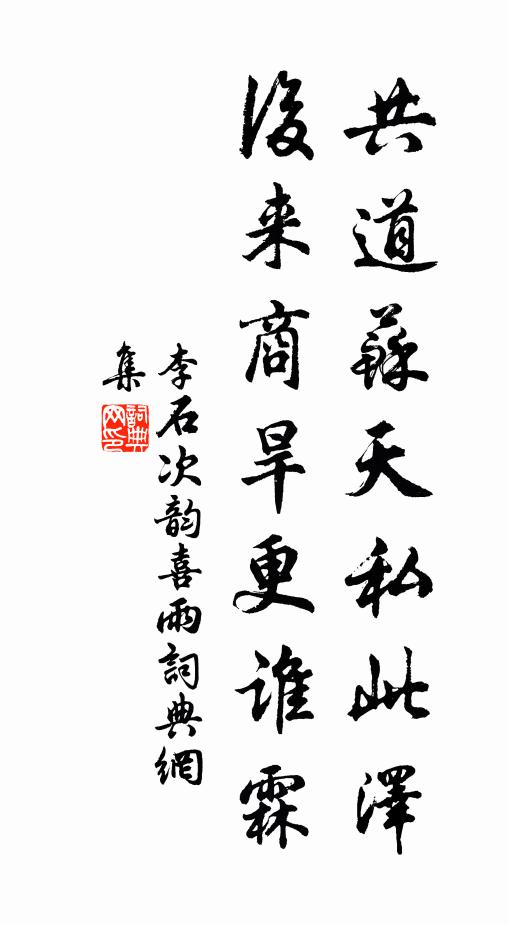 共道蘇天私此澤
後来商旱更誰霖
李石次韵喜雨詞典網
集
詞典网印